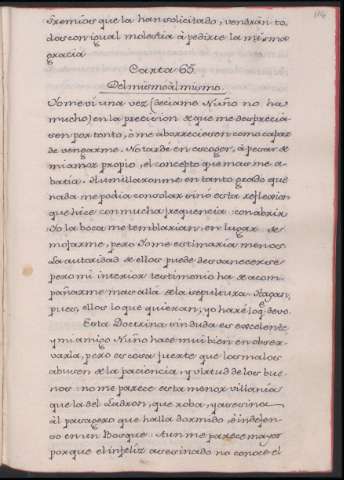 116
gremios que la han solicitado, vendràn to-
dos con igual molestia à pedirte la misma
gracia
Carta 65.
Del mismo al mismo.
Yo me vì una vez (deciame Nuño no ha
mucho) en la precision de que me desprecia-
sen por tonto, ò me aborreciesen como capaz
de vengarme. No tardè en escoger, à pesar de
mi amor propio, el concepto que mas me a-
batia. Humillaronme en tanto grado que
nada me podia consolar sinò esta reflexion
que hice con mucha frequencia: con abrir
Yo la boca me temblarian, en lugar de
mofarme, pero Yo me estimaria menos.
La autoridad de ellos puede desvanecerse
pero mi interior testimonio ha de acom-
pañarme mas allà de la sepultura. Hagan,
pues, ellos lo que quieran, yo harè lo q.e devo.
Esta Doctrina sin duda es excelente
y mi amigo Nuño hace mui bien en obser-
varla, pero es cosa fuerte que los malos
abusen de la paciencia, y virtud de los bue-
nos: no me parece esta menor villania
que la del Ladron, que roba, y asesina
àl pasagero que halla dormido, è indefen-
so en un Bosque. Aun me parece mayor
porque el infeliz asesinado no conoce el